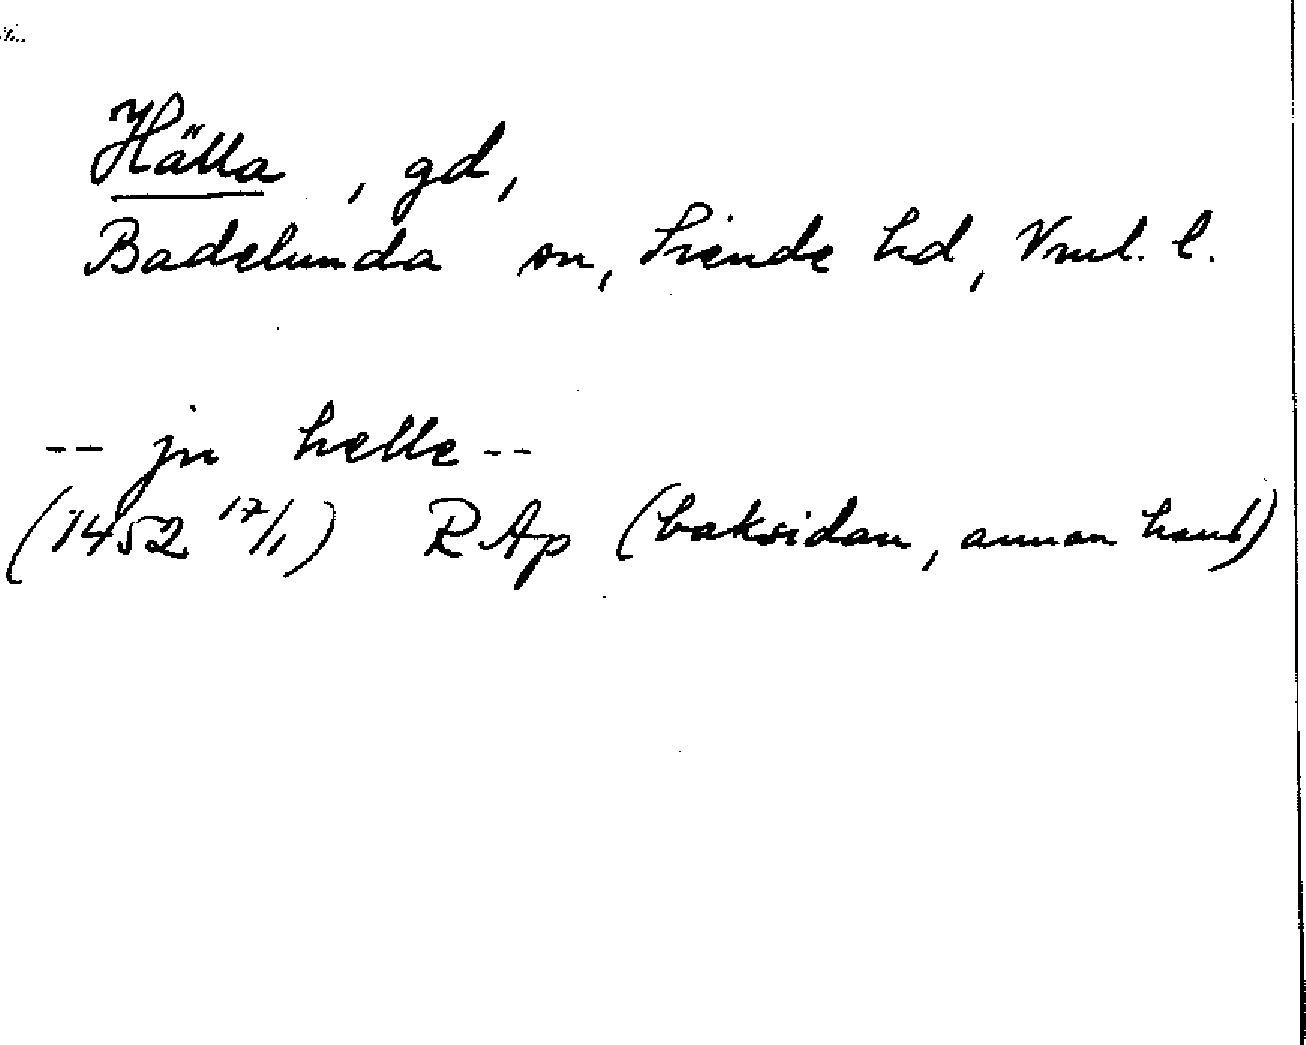 Hälla, gd,
Badelunda sn, Siende hd, Vml. l.
-- jn helle --
(1452 17/1) RAp (baksidan, annan hand)